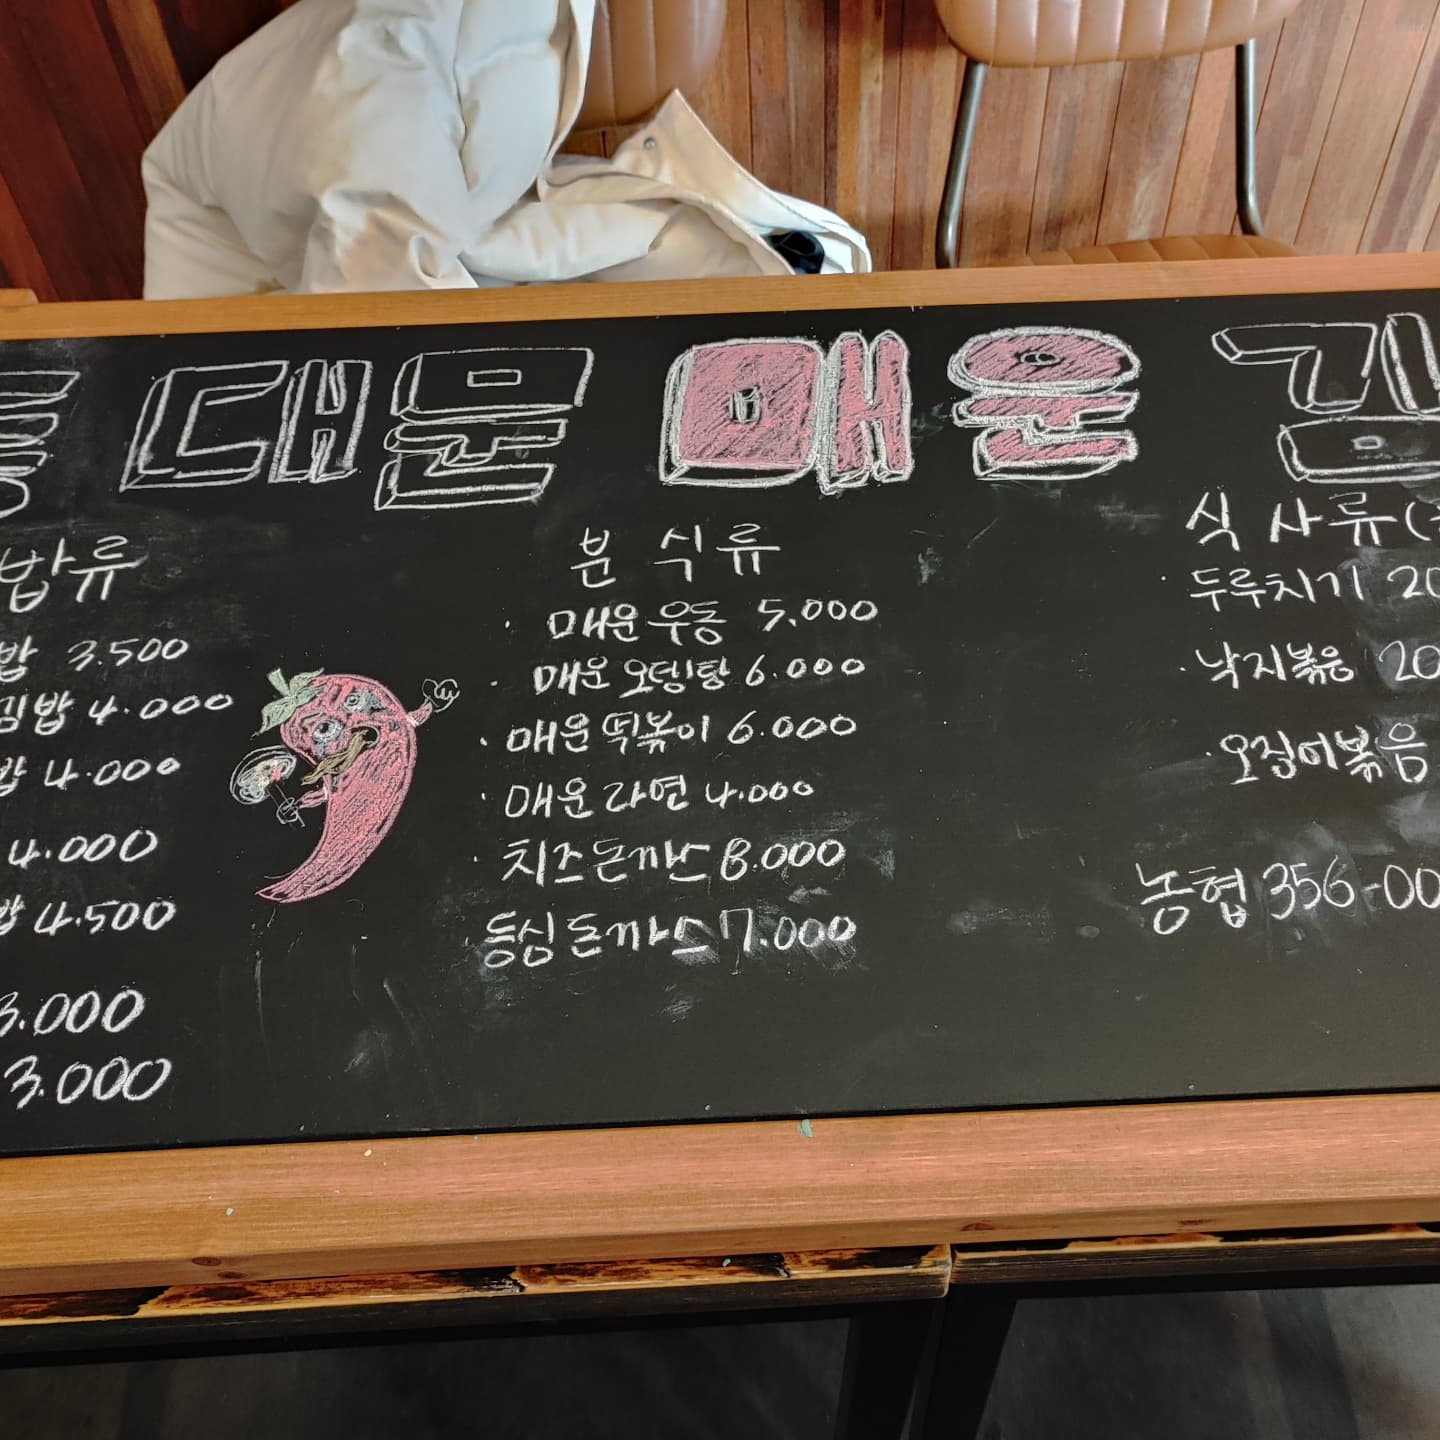 대문 매운 김
밥류
밥 3.500
김밥 4.000
밥 4.000
4.000
밥 4.500
3.000
3.000
분식류
· 매운우동 5.000
· 매운오뎅탕 6.000
· 매운떡볶이 6.000
· 매운라면 4.000
· 치즈돈까스 8.000
· 등심돈까스 7.000
식사류(
· 두루치기 20
· 낙지볶음 20
· 오징어볶음
농협 356-00